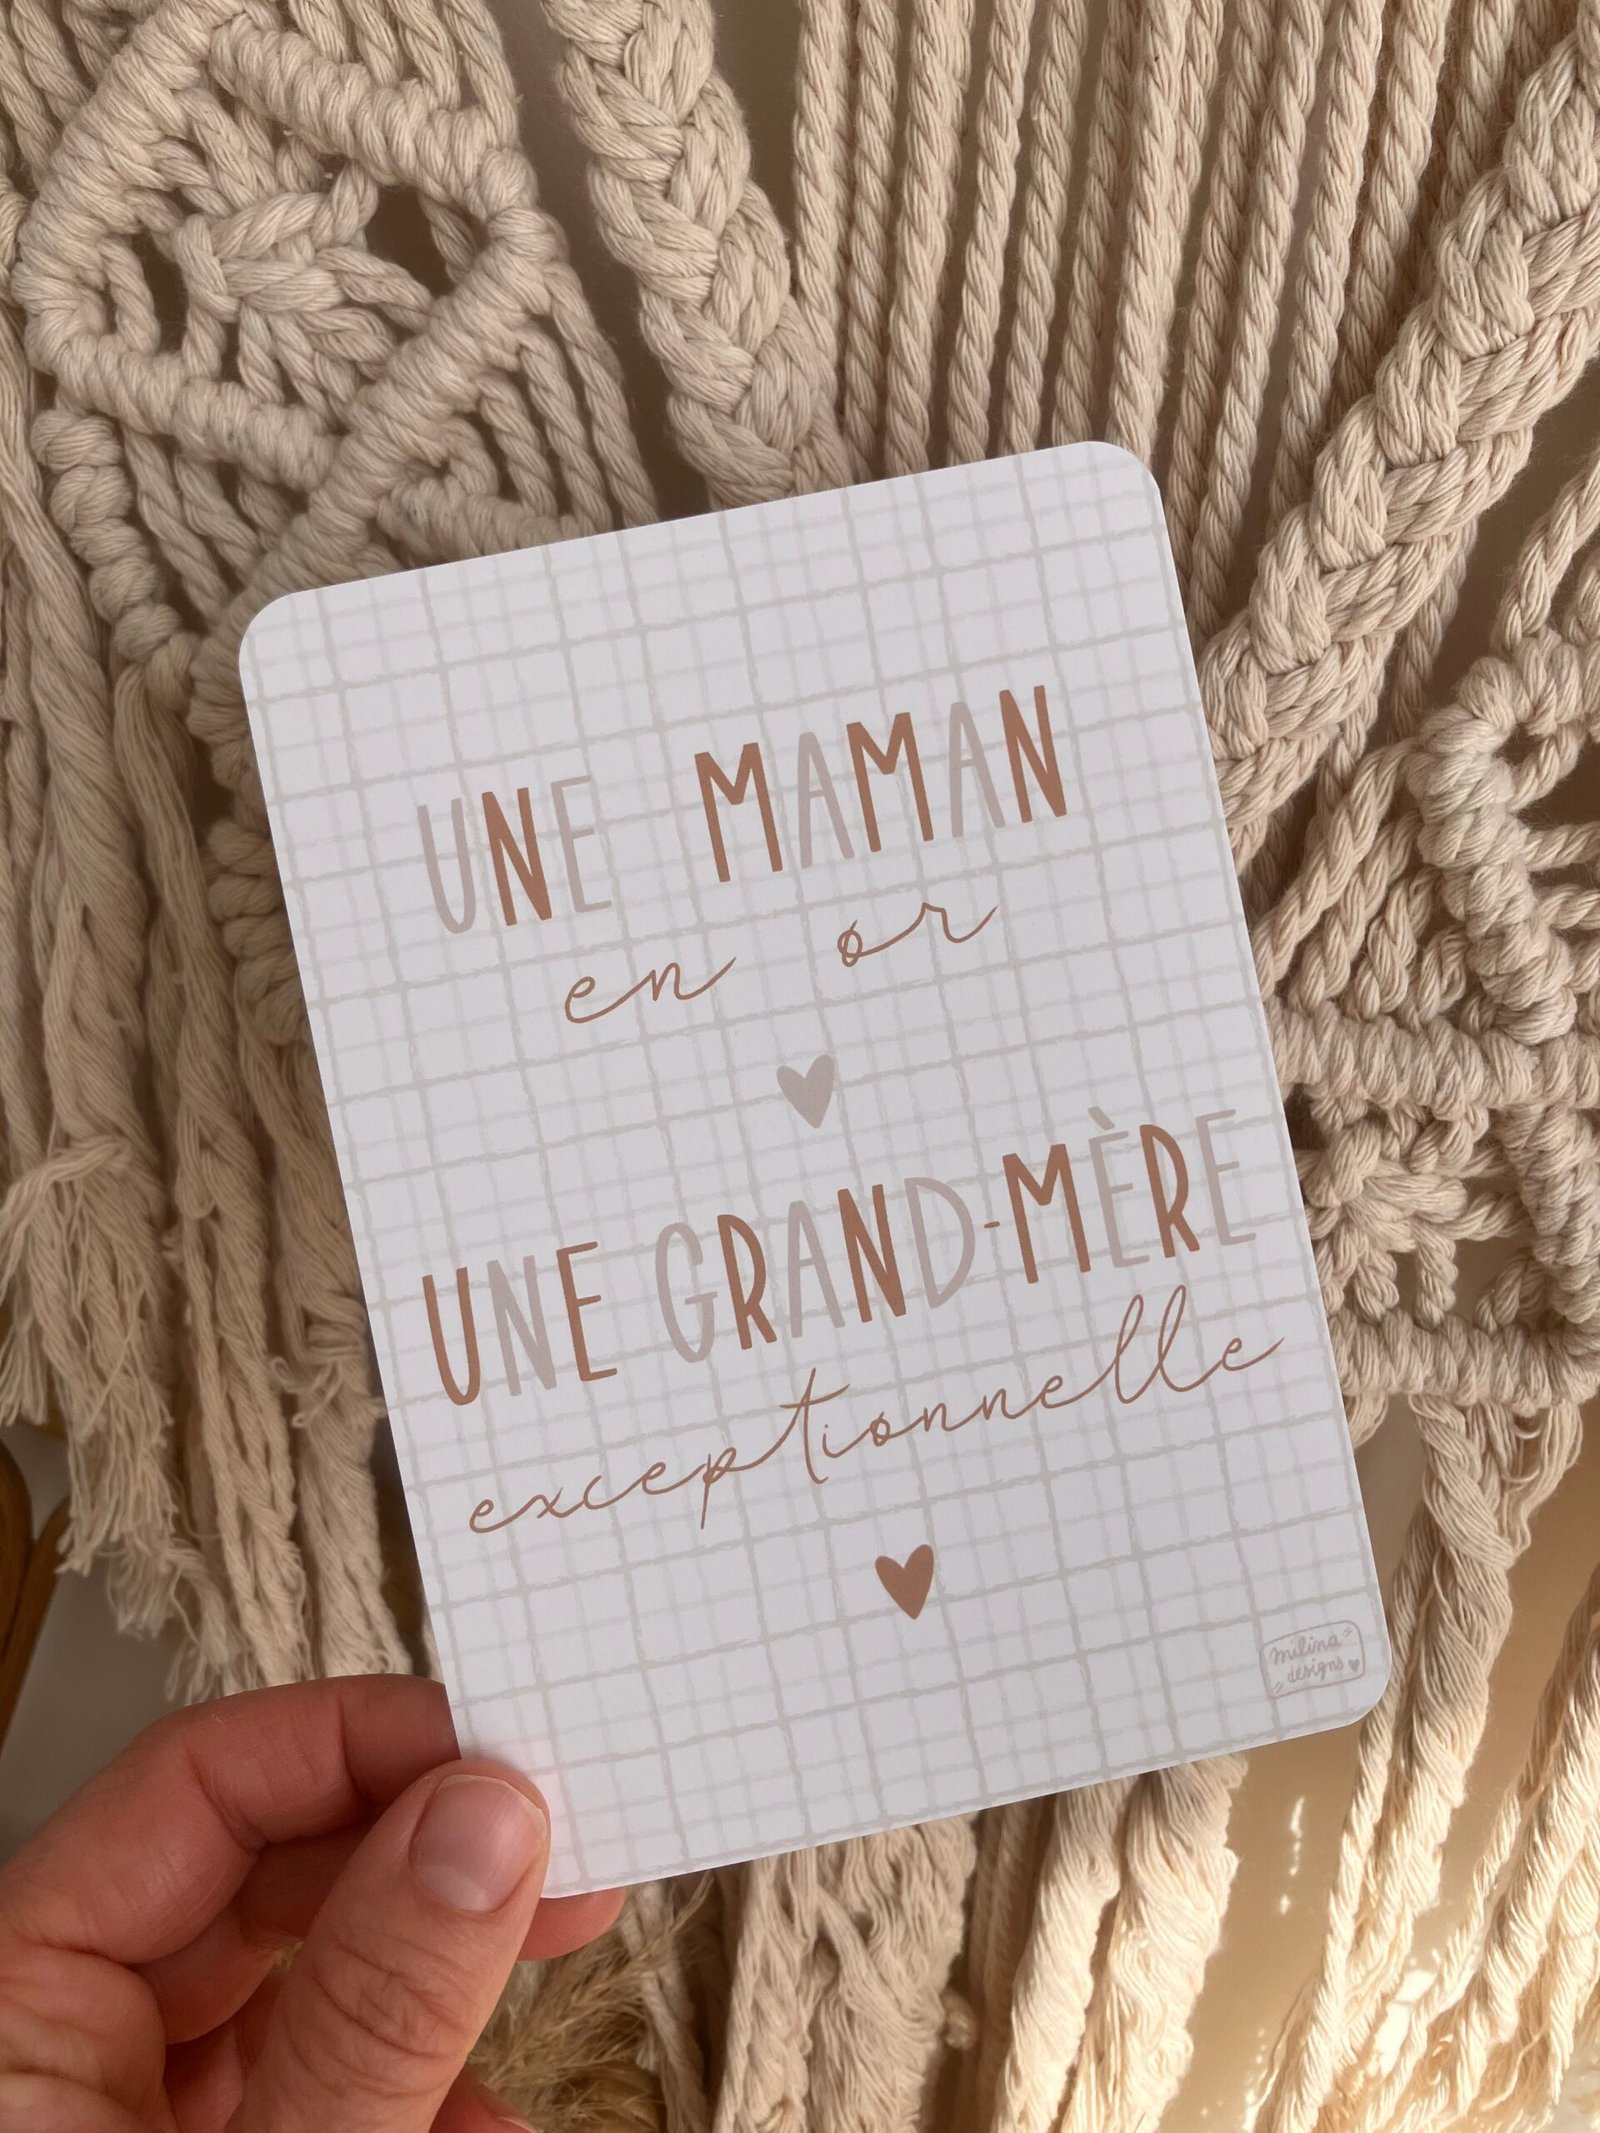 UNE MAMAN
en or
UNE GRAND-MÈRE
exceptionnelle
milina
designs